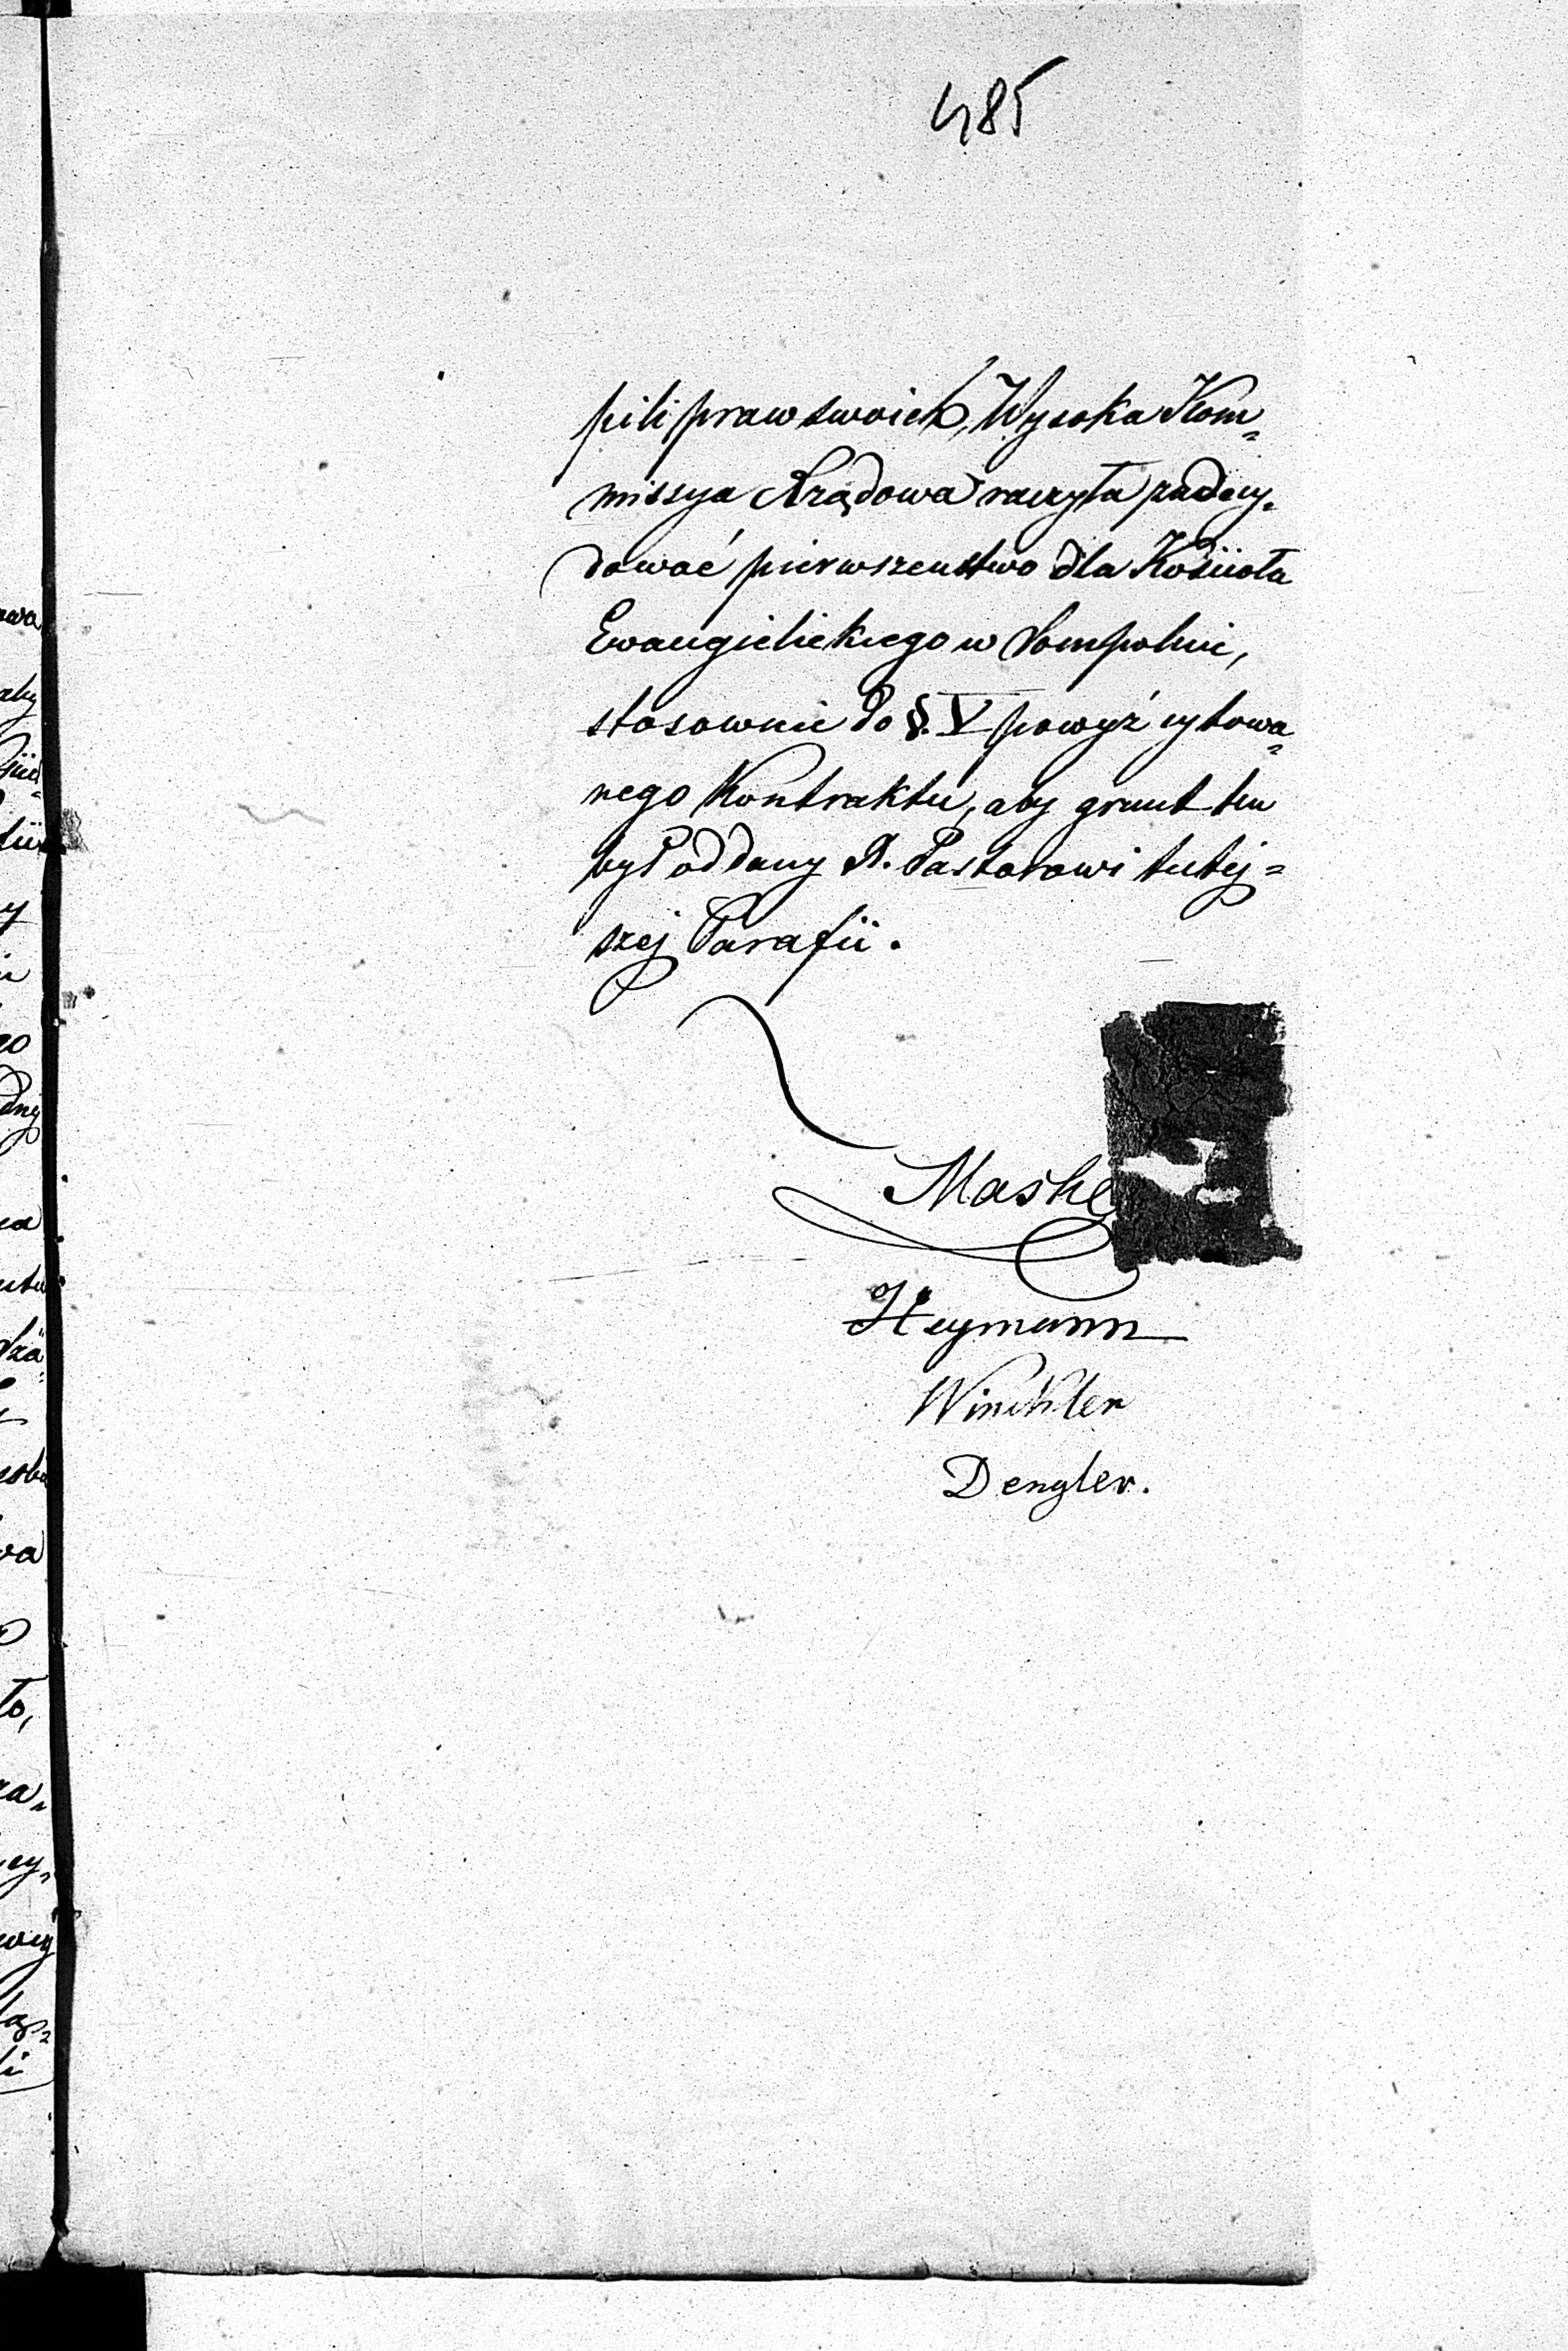 485
pili praw swoich, Wysoka Kom„
missya Rządowa raczyła zadecy„
dować pierwszeństwo dla Kościoła
Ewangielickiego w Sompolnie,
stosownie do §. V powyż cytowa„
nego Kontraktu, aby grunt ten
był oddany X. Pastorowi tutej=
szej Parafii.
Maske
Heymann
Winckler
Dengler.